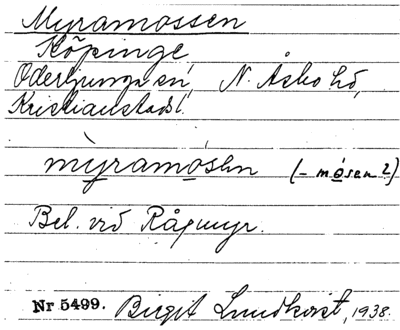 Myramossen
Köpinge
Oderljunga sn, N. Åsbo hd,
Kristianstads l.
mỳramósln (-mósen?)
Bel. vid Rågmyr.
Nr 5499. Birgit Lundkvist, 1938.